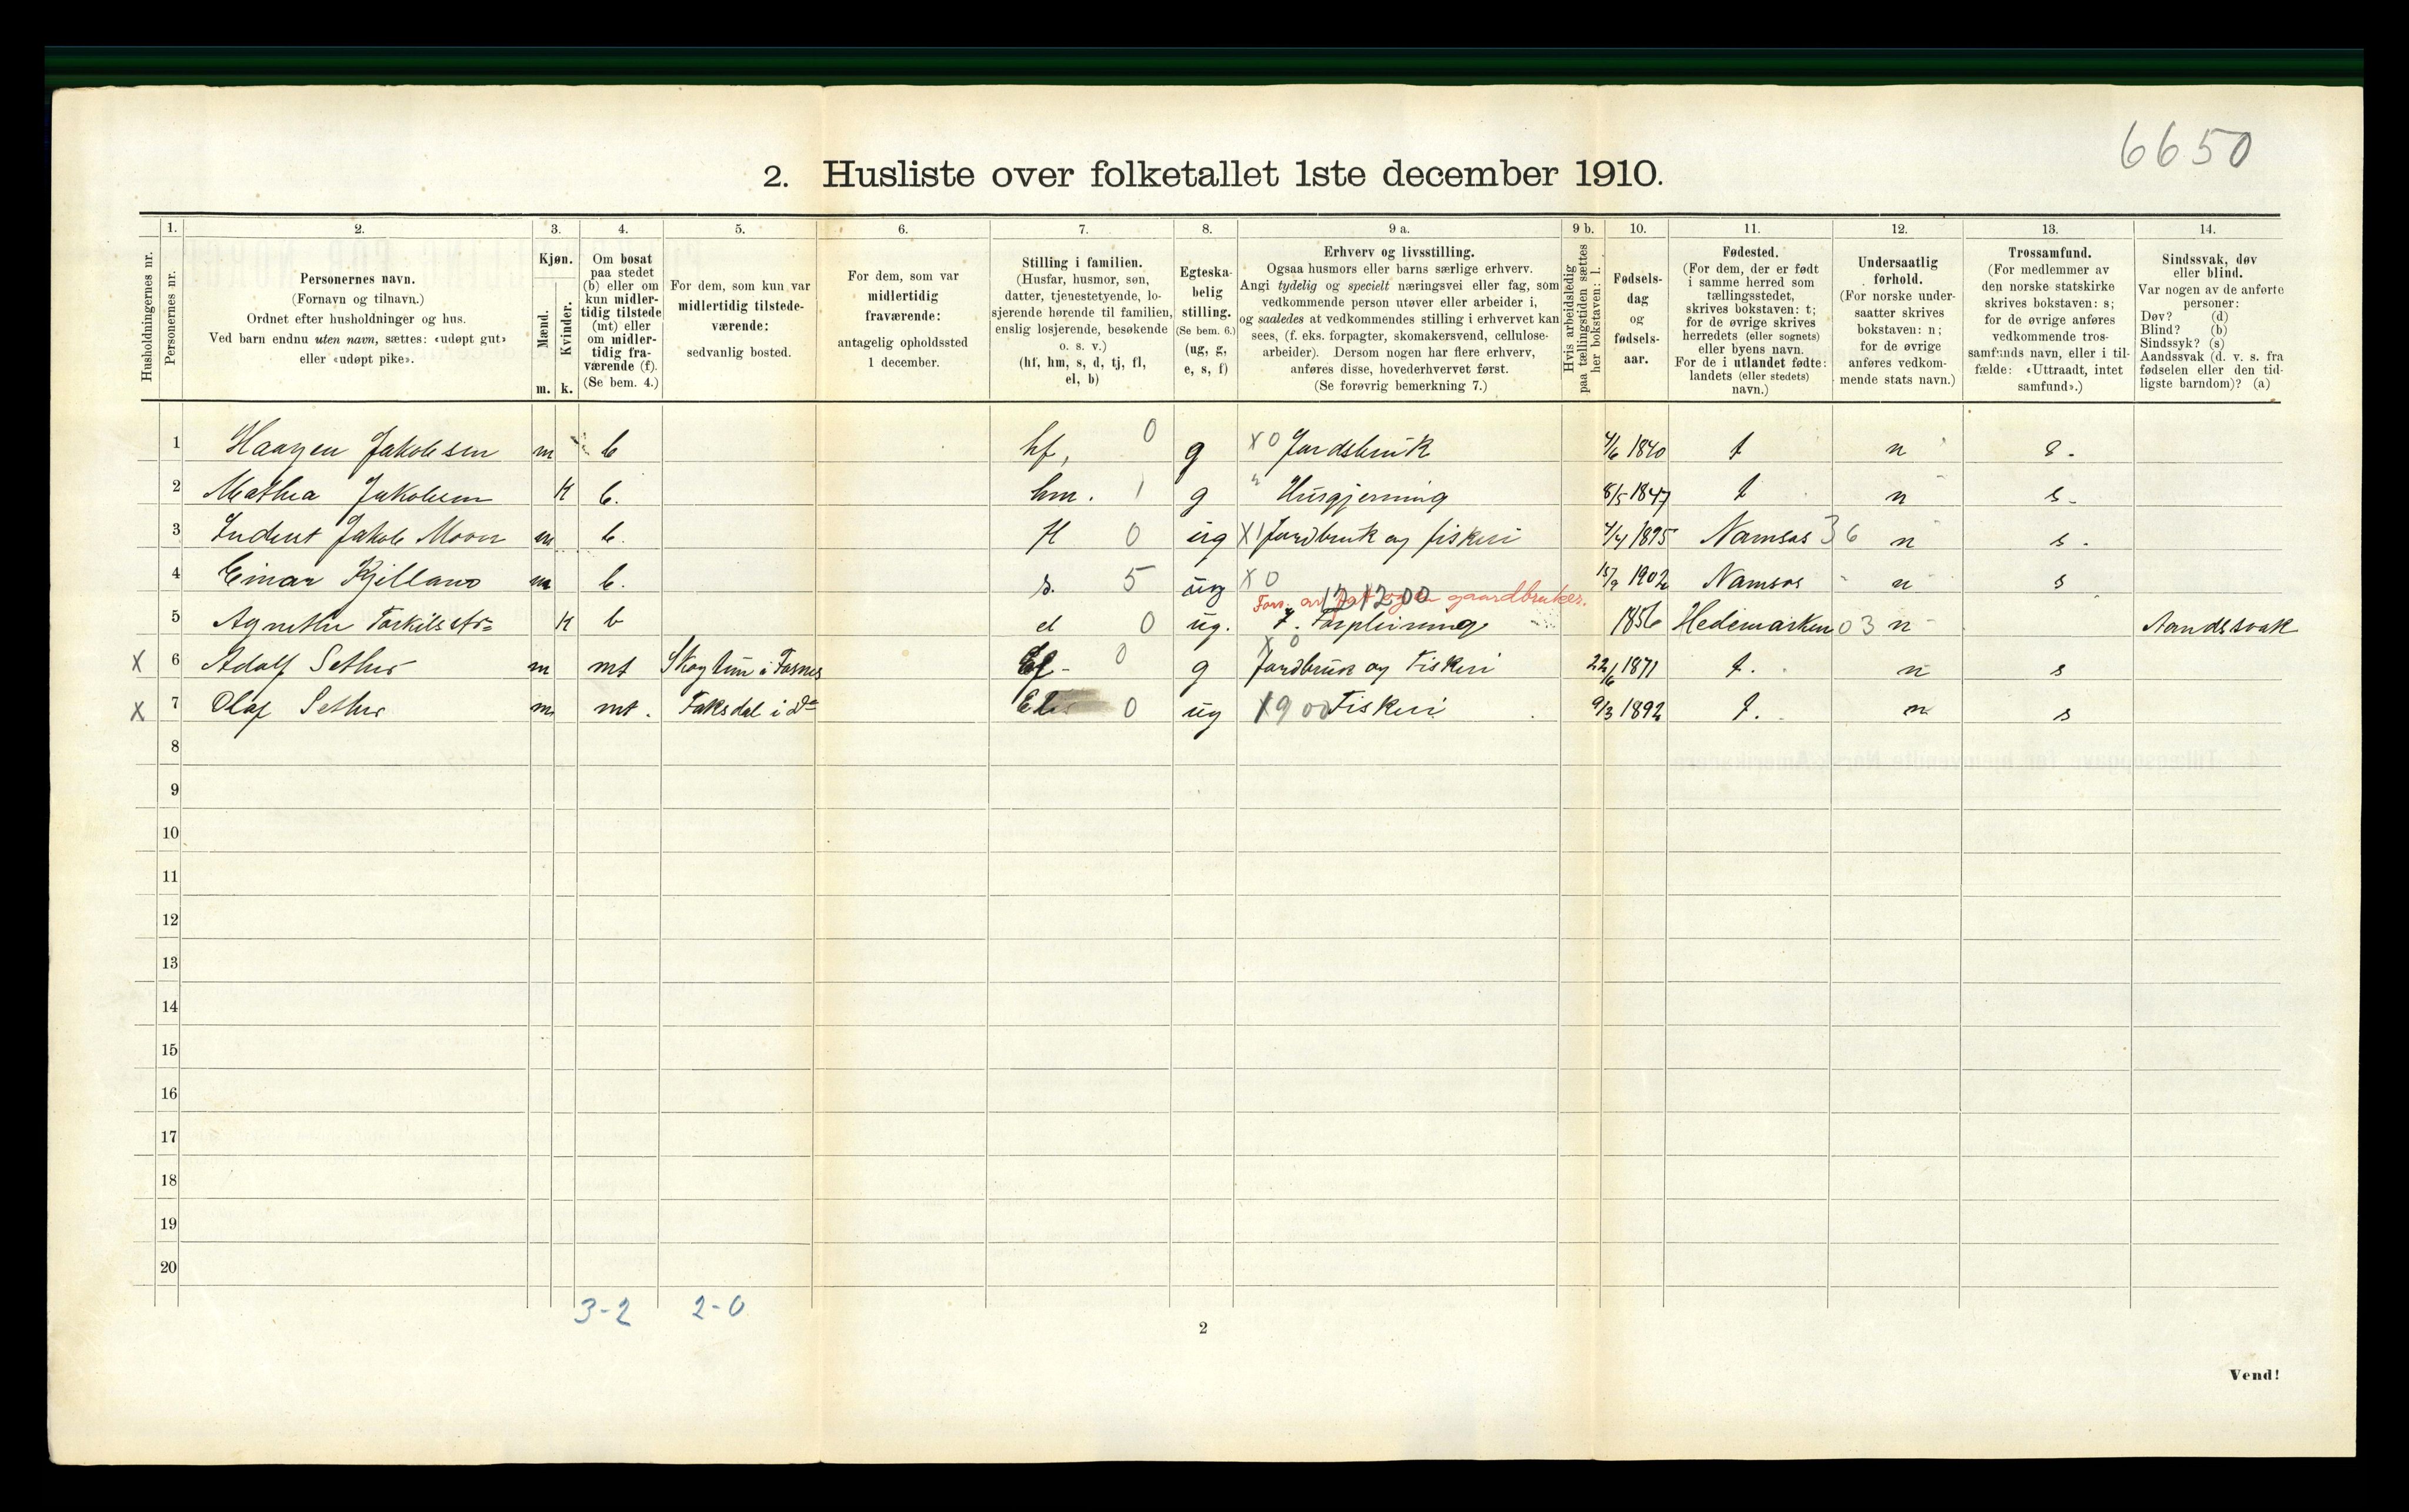 6650
2. Husliste over folketallet 1ste december 1910.
Husholdningernes nr.
1. Personernes nr.
2. Personernes navn.
(Fornavn og tilnavn.)
Ordnet efter husholdninger og hus.
Ved barn endnu uten navn, sættes: «udøpt gut»
eller «udøpt pike».
3. Kjøn.
Mænd. m.
Kvinder. k.
4. Om bosat
paa stedet
(b) eller om
kun midler-
tidig tilstede
(mt) eller
om midler-
tidig fra-
værende (f).
(Se bem. 4.)
5. For dem, som kun var
midlertidig tilstede-
værende:
sedvanlig bosted.
6. For dem, som var
midlertidig
fraværende:
antagelig opholdssted
1 december.
7. Stilling i familien.
(Husfar, husmor, søn,
datter, tjenestetyende, lo-
sjerende hørende til familien,
enslig losjerende, besøkende
o. s. v.)
(hf, hm, s, d, tj, fl,
el, b)
8. Egteska-
belig
stilling.
(Se bem. 6.)
(ug, g,
e, s, f)
9 a. Erhverv og livsstilling.
Ogsaa husmors eller barns særlige erhverv.
Angi tydelig og specielt næringsvei eller fag, som
vedkommende person utøver eller arbeider i,
og saaledes at vedkommendes stilling i erhvervet kan
sees, (f. eks. forpagter, skomakersvend, cellulose-
arbeider). Dersom nogen har flere erhverv,
anføres disse, hovederhvervet først.
(Se forøvrig bemerkning 7.)
9 b. Hvis arbeidsledig
paa tællingstiden sættes
her bokstaven: l.
10. Fødsels-
dag
og
fødsels-
aar.
11. Fødested.
(For dem, der er født
i samme herred som
tællingsstedet,
skrives bokstaven: t;
for de øvrige skrives
herredets (eller sognets)
eller byens navn.
For de i utlandet fødte:
landets (eller stedets)
navn.)
12. Undersaatlig
forhold.
(For norske under-
saatter skrives
bokstaven: n;
for de øvrige
anføres vedkom-
mende stats navn.)
13. Trossamfund.
(For medlemmer av
den norske statskirke
skrives bokstaven: s;
for de øvrige anføres
vedkommende tros-
samfunds navn, eller i til-
fælde: «Uttraadt, intet
samfund».)
14. Sindssvak, døv
eller blind.
Var nogen av de anførte
personer:
Døv? (d)
Blind? (b)
Sindssyk? (s)
Aandssvak (d. v. s. fra
fødselen eller den tid-
ligste barndom)? (a)
1 Haagen Jakobsen m b hf, 0 g X 0 Jordsbruk 4/6 1840 t n s.
2 Mathea Jakobsen K b. hm. 1 g Husgjerning 8/5 1847 t n s.
3 Jakob Moen m b. fl 0 ug X 1 Jordbruk og fiskeri 4/4 1895 Namsos 36 n s.
4 Einar m b. s. 5 ug X 0 15/9 1902 Namsos n s
gaardbruker.
5 K b el 0 ug. 1856 Hedemarken 03 n Aandssvak
X 6 Adolf Sether m mt i Fosnes 0 g X 0 Jordbruk og Fiskeri 22/6 1871 t. n s
X 7 Olaf Sether m mt. Faksdal i do 0 ug X 900 Fiskeri 9/3 1892 t. n s
8
9
10
11
12
13
14
15
16
17
18
19
20
3-2 2-0
2
Vend!